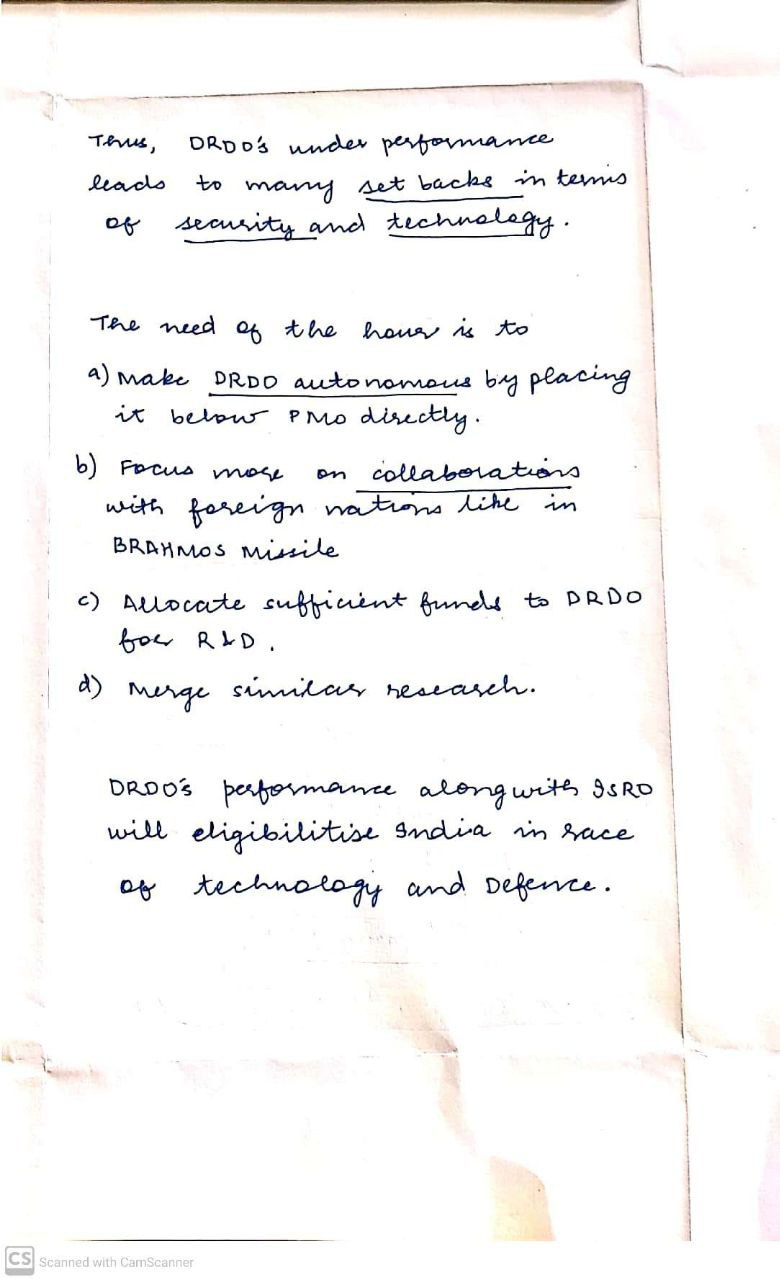 Thus, DRDO's under performance
leads to many set backs in terms
of security and technology.
The need of the hour is to
a) Make DRDO autonomous by placing
it below PMO directly.
b) Focus more on collaborations
with foreign nations like in
BRAHMOS Missile
c) Allocate sufficient funds to DRDO
for R&D.
d) Merge similar research.
DRDO's performance alongwith ISRO
will eligibilitise India in race
of technology and Defence.
CS Scanned with CamScanner